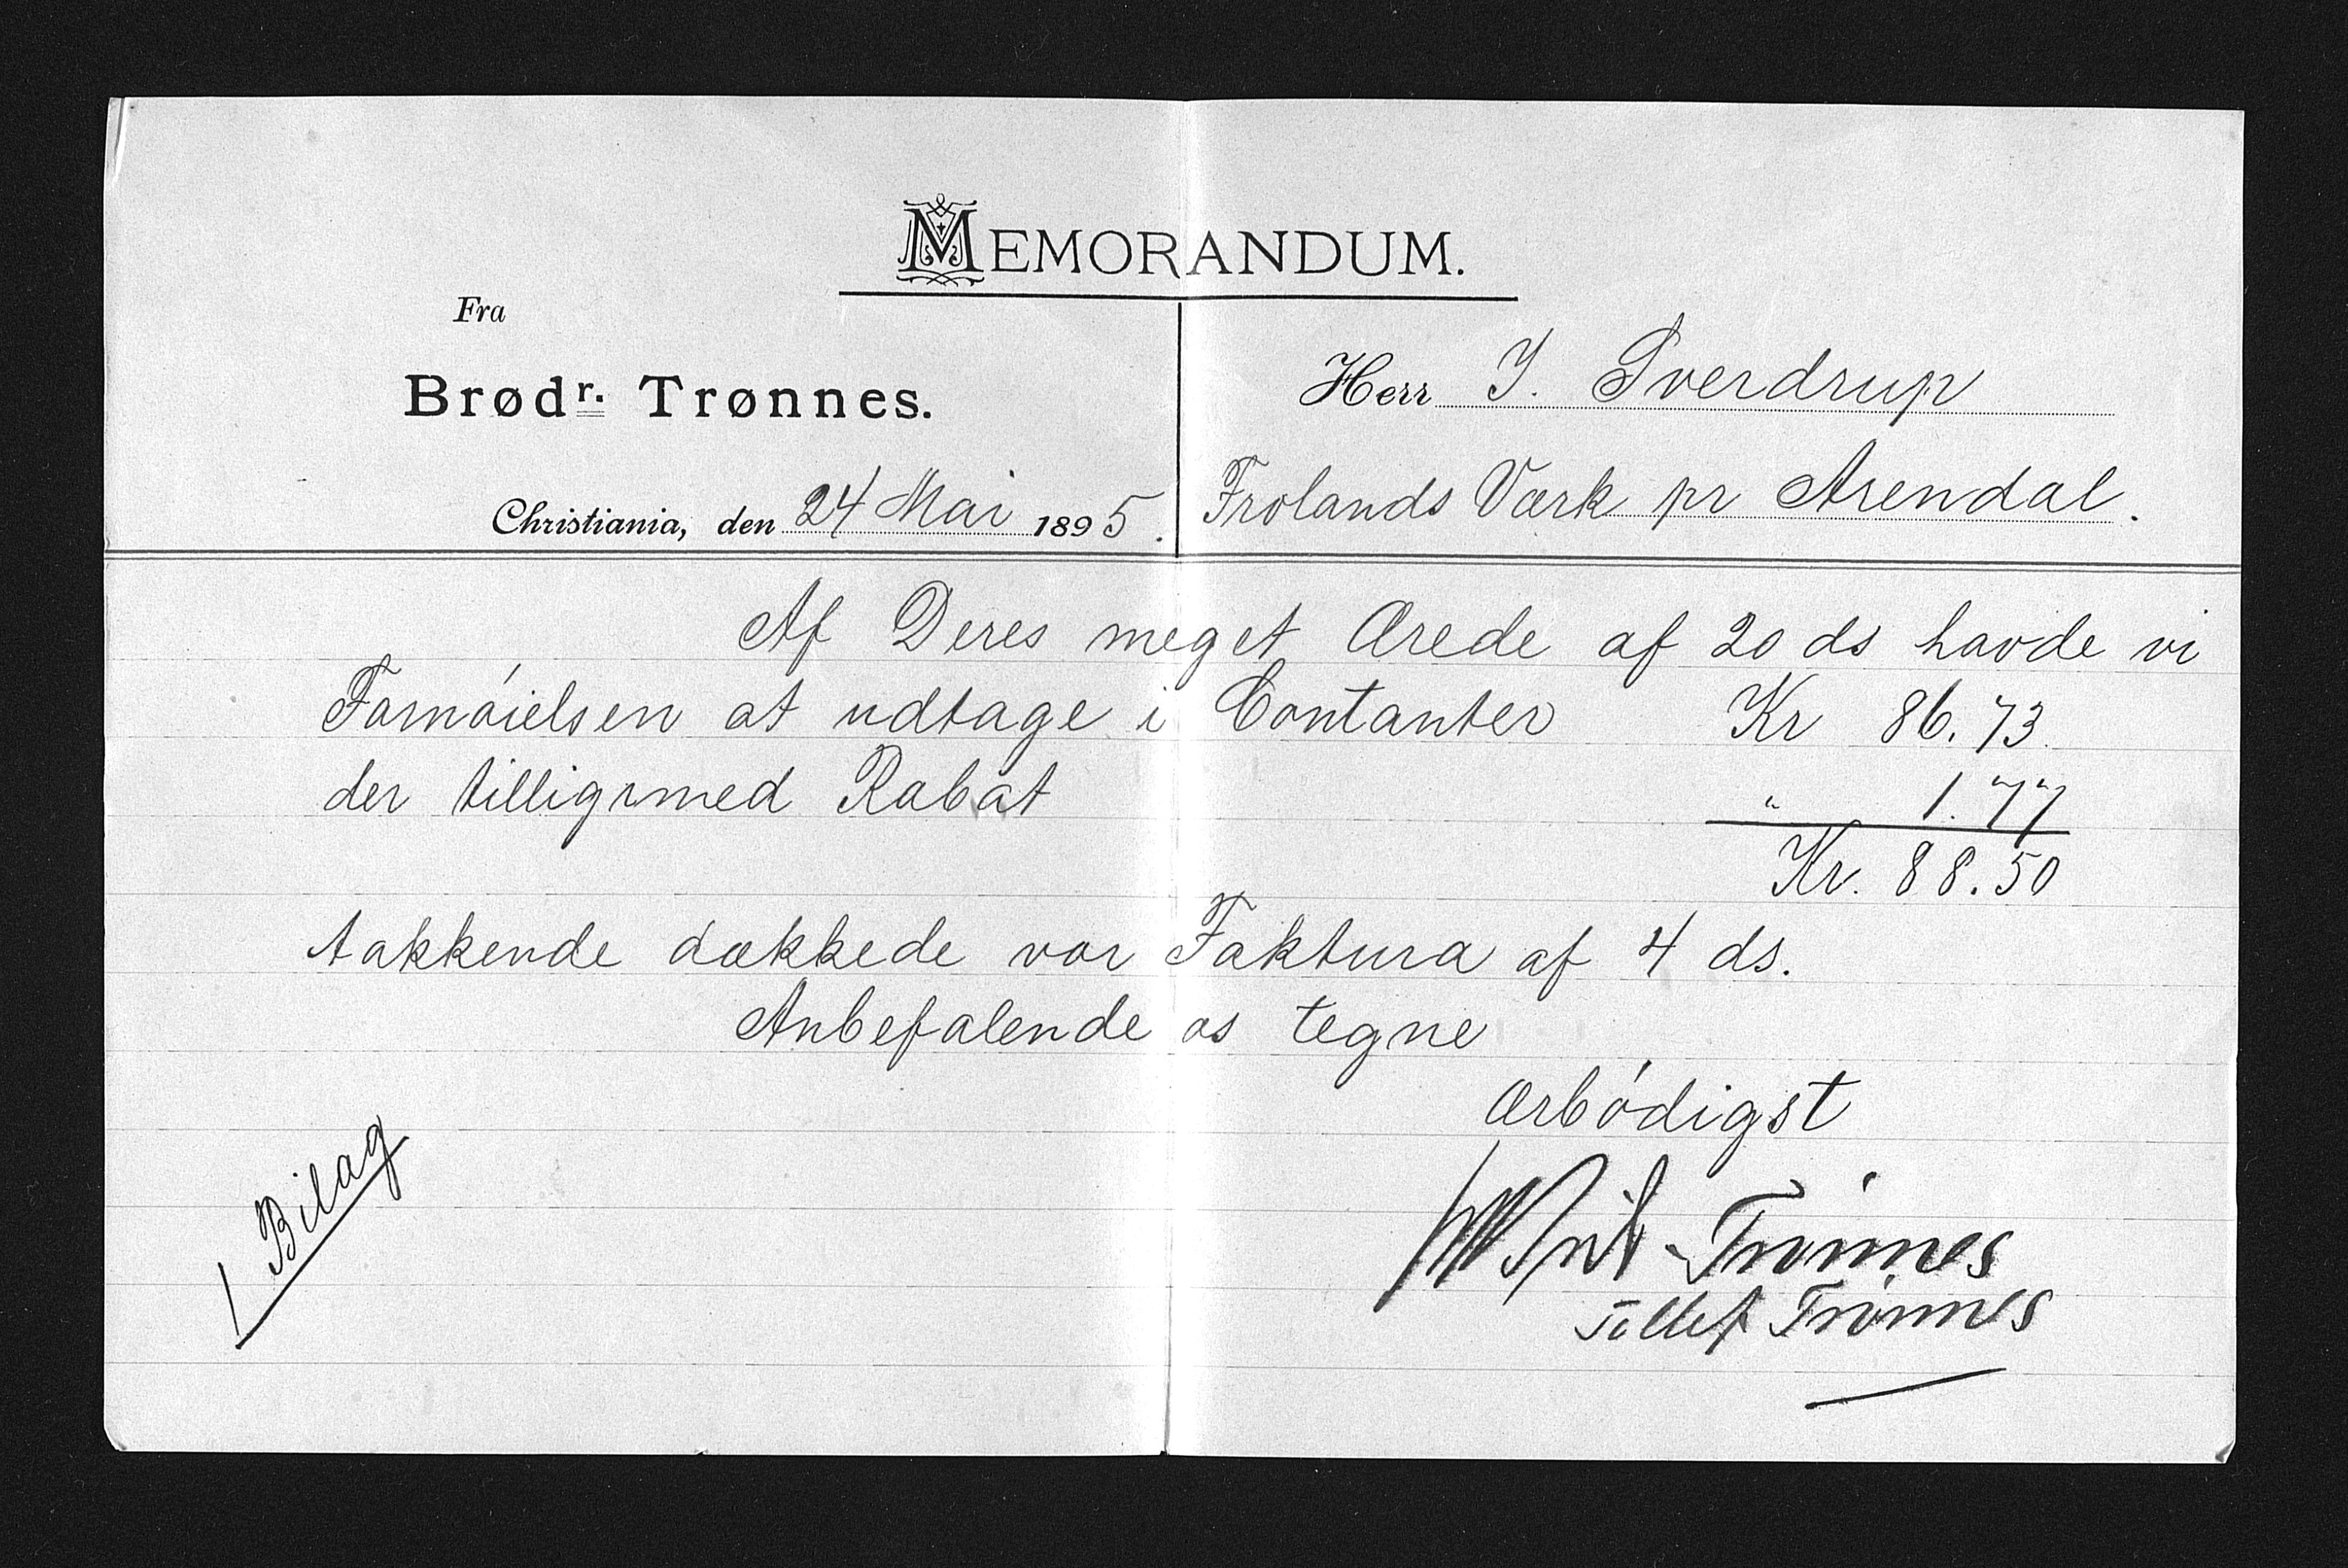 MEMORANDUM.
Fra
Brødr. Trønnes.
Christiania, den 24 Mai 1895.
Herr J. Sverdrup
Frolands Værk pr Arendal.
Af Deres meget Ærede af 20 ds havde vi
Fornøielsen at udtage i Contanter Kr 86.73
der tilligemed Rabat " 1.77
Kr. 88.50
takkende dækkede vor Faktura af 4 ds.
Anbefalende os tegne
Ærbødigst
Trønnes
Tellef Trønnes
1 Bilag